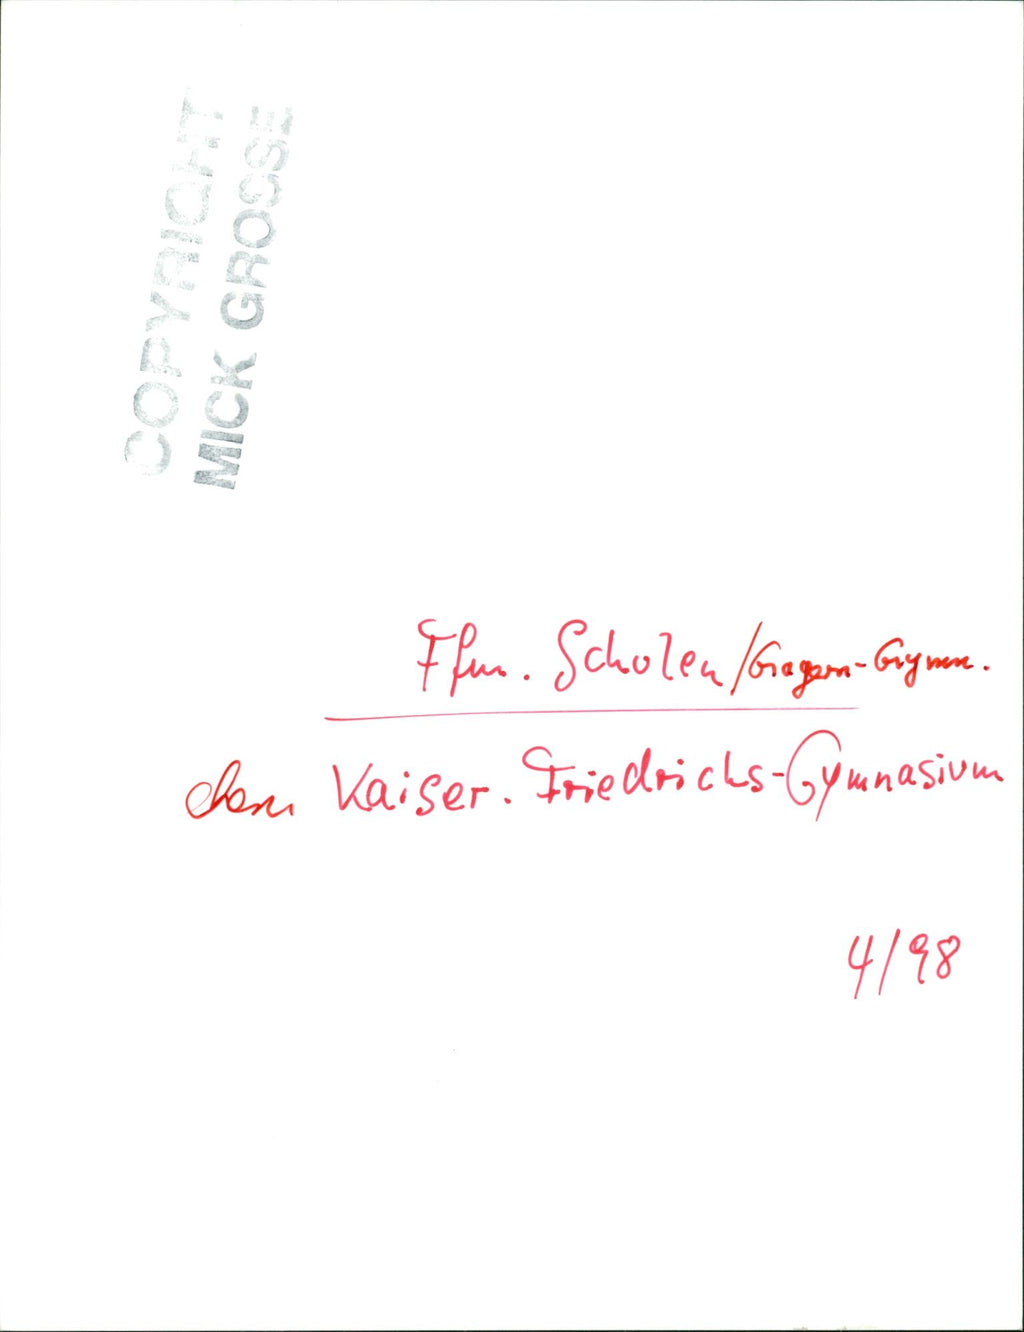 COPYRIGHT
MICK GROSSE
Ffm. Schulen / Gagern-Gymn.
Kaiser-Friedrichs-Gymnasium
4/98